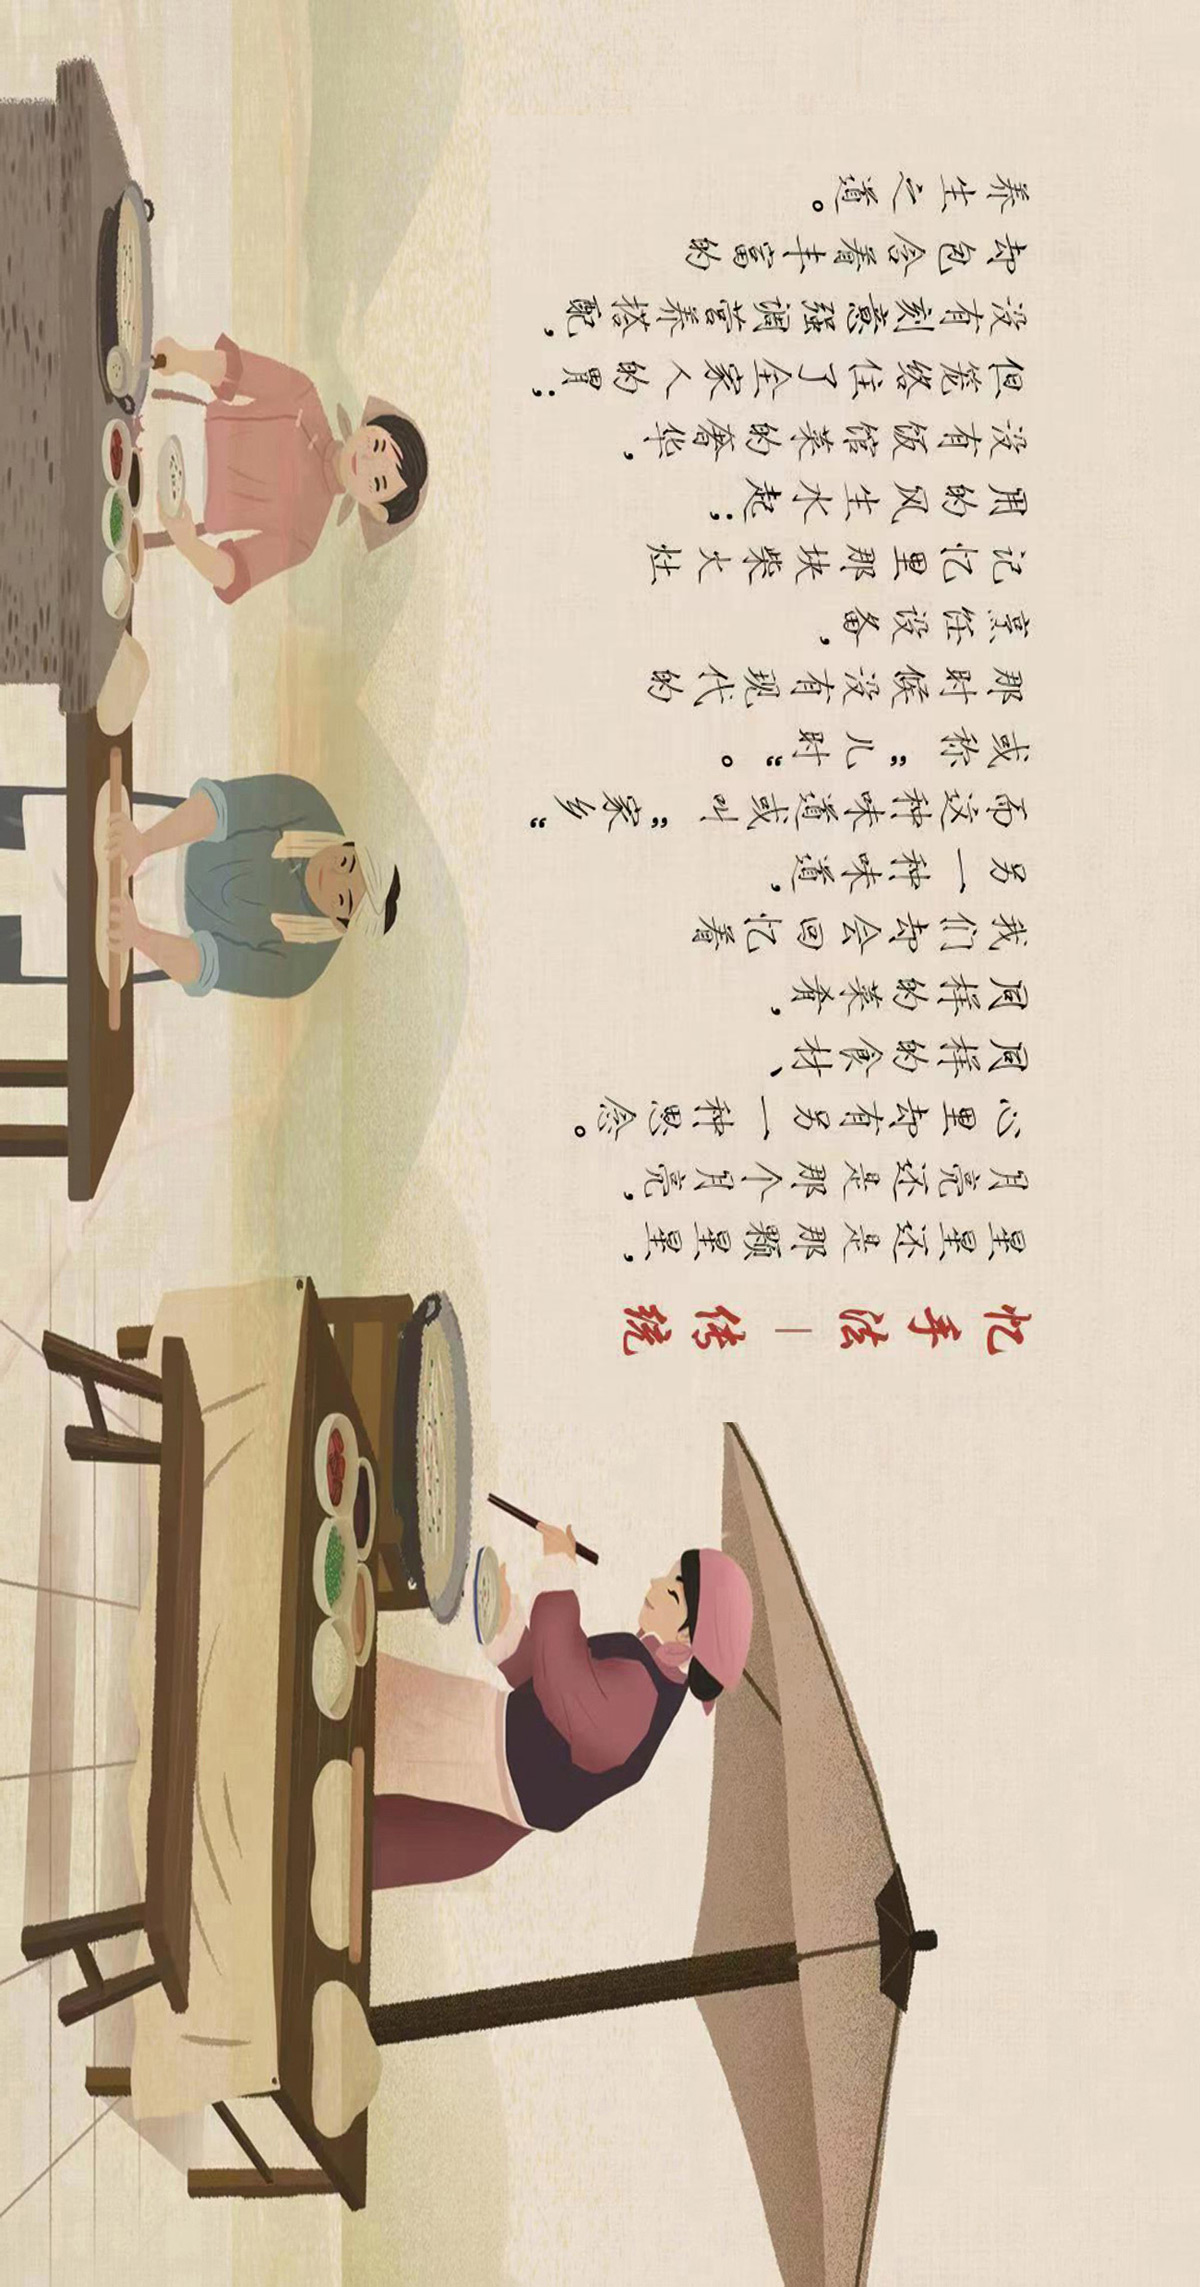 忆手法—传统
星星还是那颗星星，
月亮还是那个月亮，
心里却有另一种思念。
同样的食材、
同样的菜肴，
我们却会回忆着
另一种味道，
而这种味道或叫“家乡”
或称“儿时”。
那时候没有现代的
烹饪设备，
记忆里那块柴火灶
用的风生水起；
没有饭馆菜的奢华，
但笼络住了全家人的胃；
没有刻意强调营养搭配，
却包含着丰富的
养生之道。